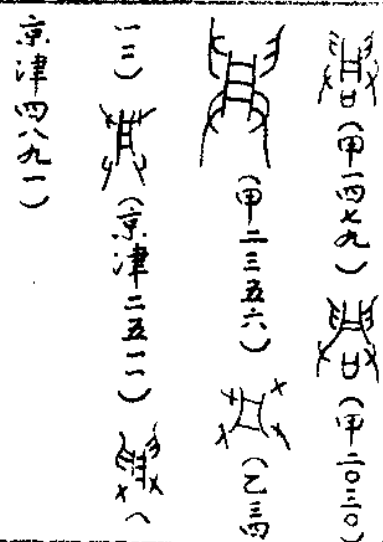 （甲一四七九）（甲二〇三〇）
（甲二三五六）（乙三四
一三）（京津二五一一）（
京津四八九一）